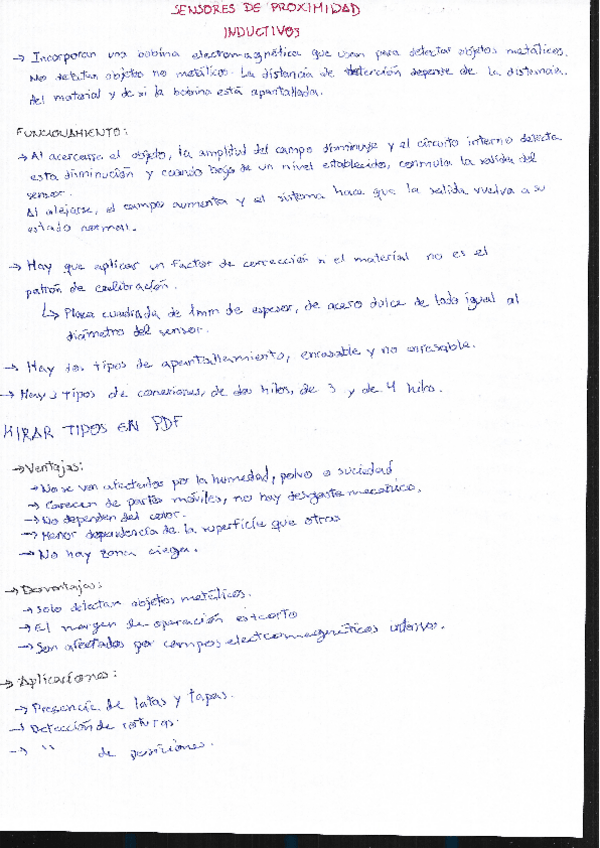 SENSORES DE PROXIMIDAD
INDUCTIVOS
→ Incorporan una bobina electromagnética que usan para detectar objetos metálicos.
No detectan objetos no metálicos. La distancia de detención depende de la distancia.
del material y de si la bobina está apantallada.
FUNCIONAMIENTO:
→ Al acercarse el objeto, la amplitud del campo disminuye y el circuito interno detecta
esta disminución y cuando baja de un nivel establecido, conmuta la salida del
sensor.
Al alejarse, el campo aumenta y el sistema hace que la salida vuelva a su
estado normal.
→ Hay que aplicar un factor de corrección si el material no es el
patrón de calibración.
↳ Placa cuadrada de 1mm de espesor, de acero dulce de lado igual al
diámetro del sensor.
→ Hay dos tipos de apantallamiento, enrasable y no enrasable.
→ Hay 3 tipos de conexiones, de dos hilos, de 3 y de 4 hilos.
MIRAR TIPOS EN PDF
→ Ventajas:
→ No se ven afectados por la humedad, polvo o suciedad
→ Carecen de partes móviles, no hay desgaste mecánico.
→ No dependen del color.
→ Menor dependencia de la superficie que otros
→ No hay zona ciega.
→ Desventajas:
→ Solo detectan objetos metálicos.
→ El margen de operación es corto
→ Son afectados por campos electromagnéticos intensos.
→ Aplicaciones:
→ Presencia de latas y tapas.
→ Detección de roturas.
→ " de posiciones.